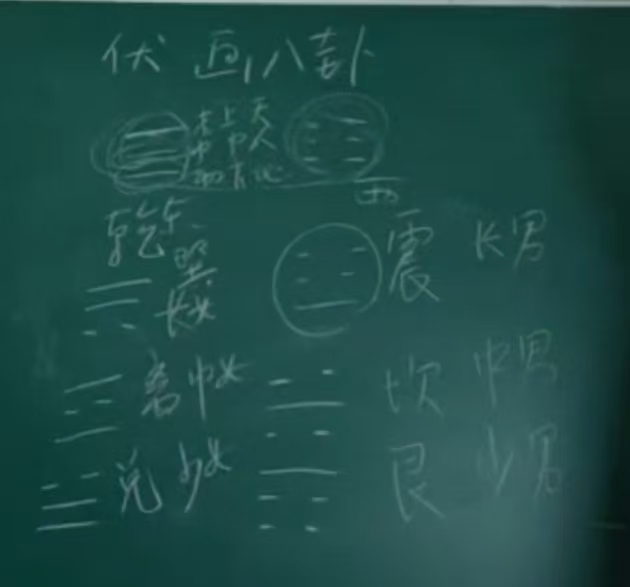 伏画八卦
老上天
中中人
初下地
西
乾东
巽 长女
震 长男
离 中女
坎 中男
兑 少女
艮 少男